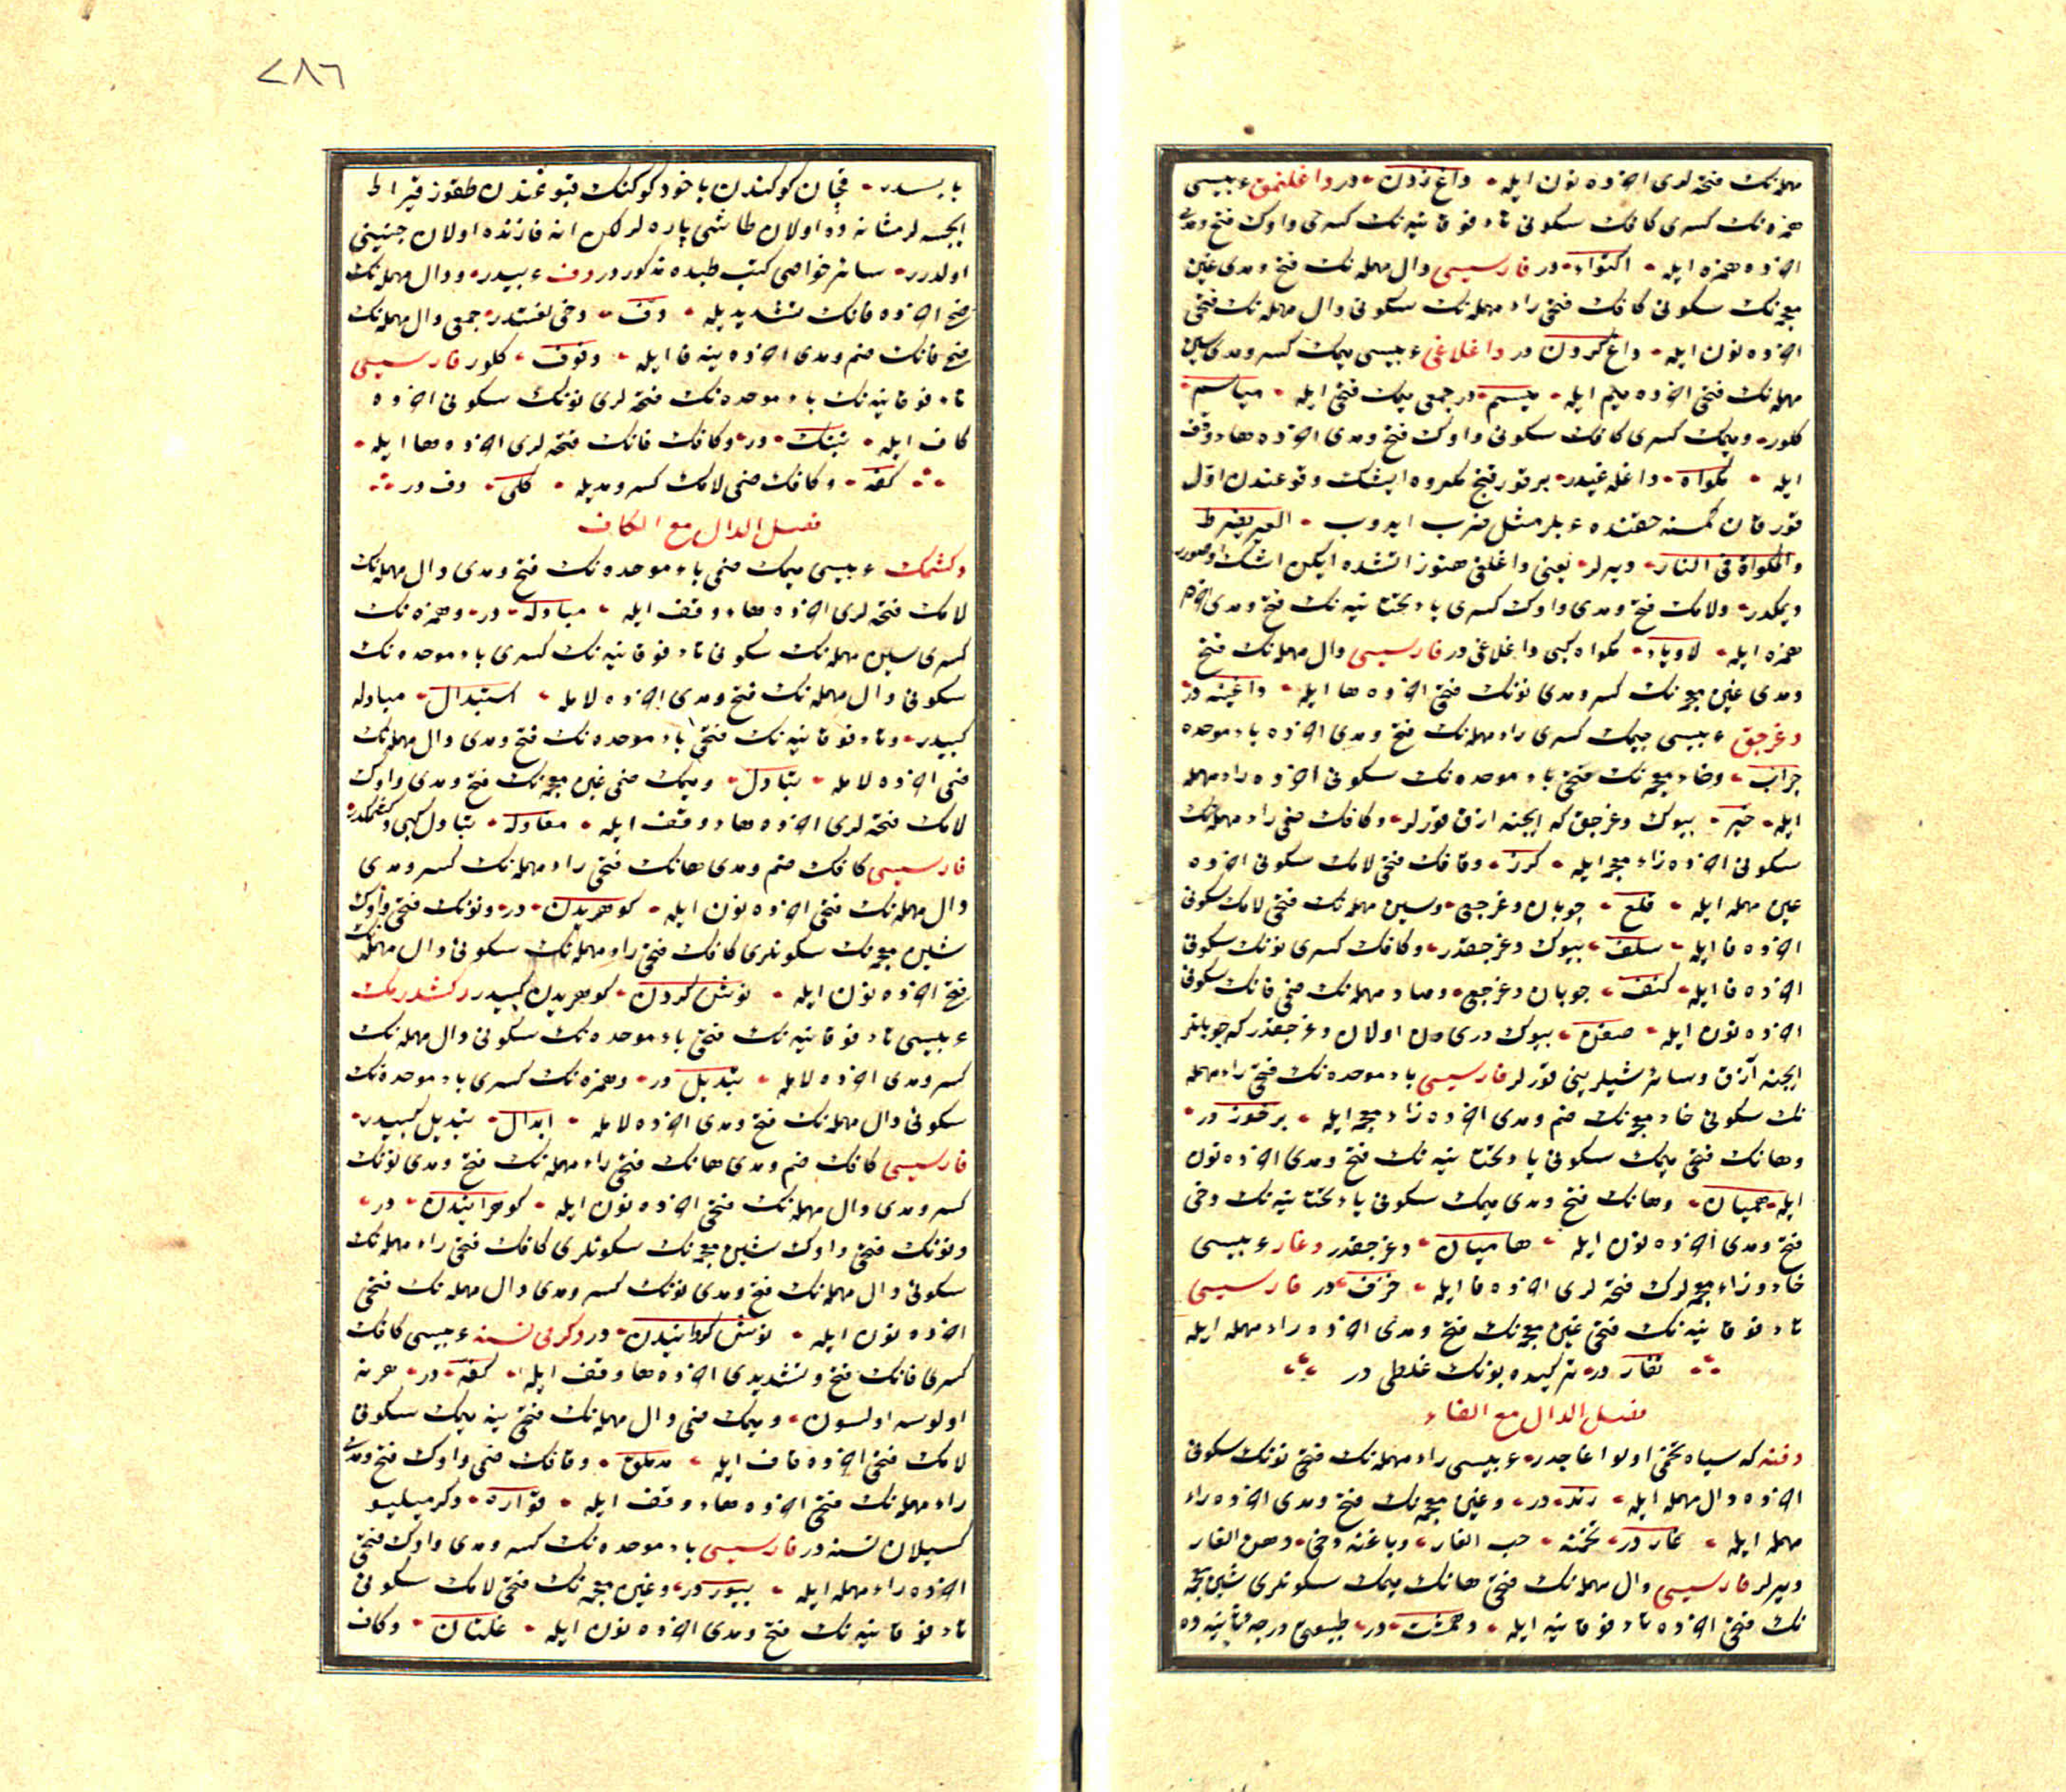 مهمله‌نك فتحه لرى اخرده نون ايله داغ زدن در داغلنمق عربيسى
همزه‌نك كسرى كافك سكونى تاء فوقانيه‌نك كسرى واوك فتح ومدى
اخرده همزه ايله اكتواء در فارسيسى دال مهمله‌نك فتح ومدى غين
معجمه‌نك سكونى كافك فتحى راء مهمله‌نك سكونى دال مهمله‌نك فتحى
اخرده نون ايله داغ كردن در داغلاغى عربيسى ميمك كسر ومدى سين
مهمله‌نك فتحى اخرده ميم ايله ميسم در جمعى ميمك فتحى ايله مياسم
كلور وميمك كسرى كافك سكونى واوك فتح ومدى اخرده هاء وقف
ايله مكواة داغله غيدر بر قورقنج مكروه ايشك وقوعندن اول
قورقان كمسنه حقنده عربلر مثل ضرب ايدوب العير يضرط
والمكواة فى النار ديرلر يعنى داغلغى هنوز اتشده ايكن اشك اوصورر
ديمكدر ولامك فتح ومدى واوك كسرى ياء تحتانيه‌نك فتح ومدى اخرده
همزه ايله لاوياء مكواه كبى داغلاغى در فارسيسى دال مهمله‌نك فتح
ومدى غين معجمه‌نك كسر ومدى نونك فتحى اخرده ها ايله داغينه در
دغرجق عربيسى جيمك كسرى راء مهمله‌نك فتح ومدى اخرده باء موحده
جراب وخاء معجمه‌نك فتحى باء موحده‌نك سكونى اخرده راء مهمله
ايله خبر بيوك دغرجق كه ايجنه ازق قورلر وكافك ضمى راء مهمله‌نك
سكونى اخرده زاء معجمه ايله كرز وقافك فتحى لامك سكونى اخرده
عين مهمله ايله قلع چوبان دغرجغى وسين مهمله‌نك فتحى لامك سكونى
اخرده فا ايله سلف بيوك دغرجقدر وكافك كسرى نونك سكونى
اخرده فا ايله كنف چوبان دغرجغى وصاد مهمله‌نك ضمى فانك سكونى
اخرده نون ايله صفن بيوك دريدن اولان دغرجقدر كه چوبانلر
ايچنه آزق وسائر شيلرينى قورلر فارسيسى باء موحده‌نك فتحى راء مهمله
نك سكونى خاء معجمه‌نك ضم ومدى اخرده زاء معجمه ايله برخوز در
وهانك فتحى ميمك سكونى ياء تحتانيه‌نك فتح ومدى اخرده نون
ايله هميان وهانك فتح ومدى ميمك سكونى ياء تحتانيه‌نك دخى
فتح ومدى اخرده نون ايله هاميان دغرجقدر دغار عربيسى
خاء وزاء معجمه لرك فتحه لرى اخرده فا ايله خزف در فارسيسى
تاء فوقانيه‌نك فتحى غين معجمه‌نك فتح ومدى اخرده راء مهمله ايله
تغار در تركيده بونك غلطى در
فصل الدال مع الفاء
دفنه كه سياه تخمى اولو اغاجدر عربيسى راء مهمله‌نك فتحى نونك سكونى
اخرده دال مهمله ايله رند در وغين معجمه‌نك فتح ومدى اخرده راء
مهمله ايله غار در تخمنه حب الغار وياغنه دخى دهن الغار
ديرلر فارسيسى دال مهمله‌نك فتحى هانك ميمك سكونلرى شين معجمه
نك فتحى اخرده تاء فوقانيه ايله دهمشت در طبيعتى درجه ثانيه ده
٢٨٦
يابسدر فنجان كوكندن ياخود كوكنك قبوغندن طقوز قيراط
ايچسه لر مثانه ده اولان طاشى پاره لر لكن انه قارننده اولان جنينى
اولدرر سائر خواصى كتب طبده مذكوردر دف عربيدر ودال مهمله‌نك
فتحى اخرده فانك تشديديله دف دخى لغتدر جمعى دال مهمله‌نك
ضمى فانك ضم ومدى اخرده ينه فا ايله دفوف كلور فارسيسى
تاء فوقانيه‌نك باء موحده‌نك فتحه لرى نونك سكونى اخرده
كاف ايله تبنك در وكافك فانك فتحه لرى اخرده ها ايله
كفه وكافك ضمى لامك كسر ومديله كلى دف در
فصل الدال مع الكاف
دكشمك عربيسى ميمك ضمى باء موحده‌نك فتح ومدى دال مهمله‌نك
لامك فتحه لرى اخرده هاء وقف ايله مبادله در وهمزه‌نك
كسرى سين مهمله‌نك سكونى تاء فوقانيه‌نك كسرى باء موحده‌نك
سكونى دال مهمله‌نك فتح ومدى اخرده لامله استبدال مبادله
كبيدر وتاء فوقانيه‌نك فتحى باء موحده‌نك فتح ومدى دال مهمله‌نك
ضمى اخرده لامله تبادل وميمك ضمى غين معجمه‌نك فتح ومدى واوك
لامك فتحه لرى اخرده هاء وقف ايله مغاوله تبادل كبى دكشمكدر
فارسيسى كافك ضم ومدى هانك فتحى راء مهمله‌نك كسر ومدى
دال مهمله‌نك فتحى اخرده نون ايله كوهريدن در ونونك فتحى واوك
شين معجمه‌نك سكونلرى كافك فتحى راء مهمله‌نك سكونى دال مهمله‌نك
فتحى اخرده نون ايله نوش كردن كوهريدن كبيدر دكشدرمك
عربيسى تاء فوقانيه‌نك فتحى باء موحده‌نك سكونى دال مهمله‌نك
كسر ومدى اخرده لامله تبديل در وهمزه‌نك كسرى باء موحده‌نك
سكونى دال مهمله‌نك فتح ومدى اخرده لامله ابدال تبديل كبيدر
فارسيسى كافك ضم ومدى هانك فتحى راء مهمله‌نك فتح ومدى نونك
كسر ومدى دال مهمله‌نك فتحى اخرده نون ايله كوهرانيدن در
ونونك فتحى واوك شين معجمه‌نك سكونلرى كافك فتحى راء مهمله‌نك
سكونى دال مهمله‌نك فتح ومدى نونك كسر ومدى دال مهمله‌نك فتحى
اخرده نون ايله نوش كردانيدن در دكرمى نسنه عربيسى كافك
كسرى فانك فتح وتشديدى اخرده هاء وقف ايله كفه در هر نه
اولورسه اولسون وميمك ضمى دال مهمله‌نك فتحى ينه ميمك سكونى
لامك فتحى اخرده قاف ايله مدملق وقافك ضمى واوك فتح ومدى
راء مهمله‌نك فتحى اخرده هاء وقف ايله قواره دكرميليو
كسيلان نسنه در فارسيسى باء موحده‌نك كسر ومدى واوك فتحى
اخرده راء مهمله ايله بيور در وغين معجمه‌نك فتحى لامك سكونى
تاء فوقانيه‌نك فتح ومدى اخرده نون ايله غلتان وكاف